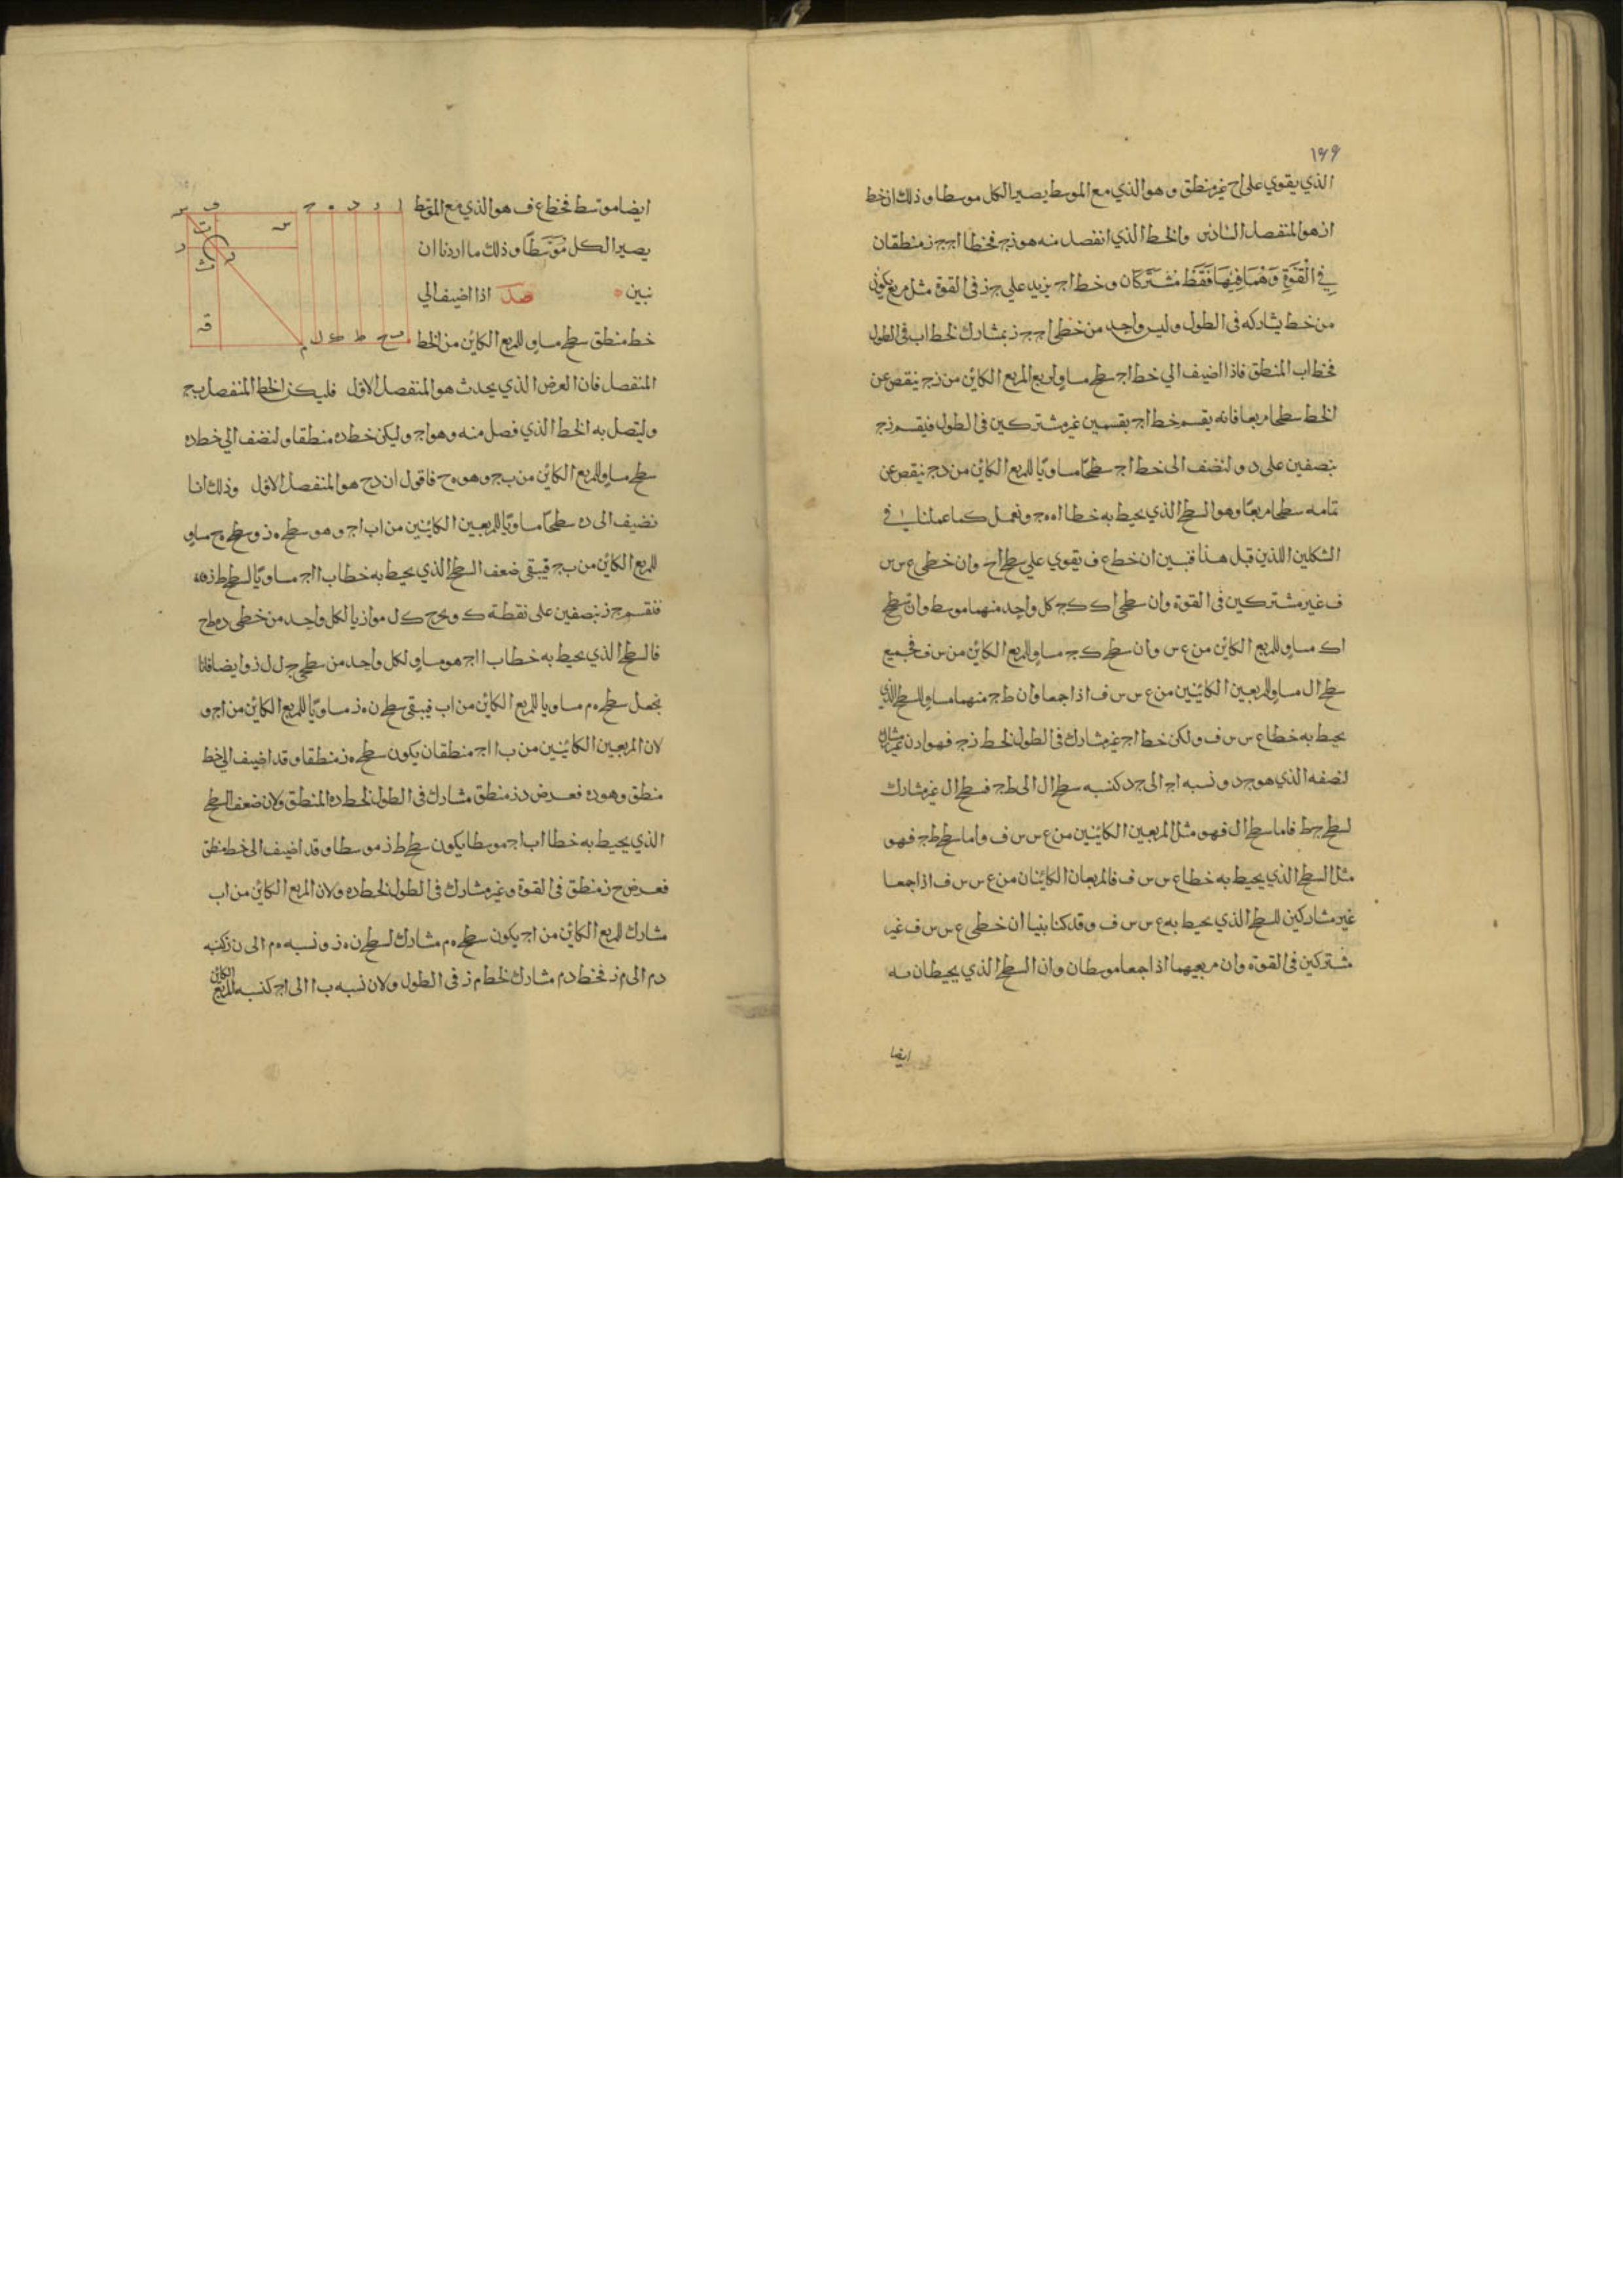 ١٩٩
الذي يقوي على اح غير منطق وهو الذي مع الموسط يصير الكل موسطا وذلك ان خط
از هو المنفصل السادس والخط الذي انفصل منه هو زج فخطا اج ج ز منطقان
في القوة وهما فيها فقط مشتركان وخط اج يزيد علي ج ز في القوة مثل مربع يكون
من خط يشاركه في الطول وليس واحد من خطي اج ج ز بمشارك لخط اب في الطول
فخط اب المنطق فاذا اضيف الي خط اج سطح مساو لربع المربع الكائن من زج ينقص عن
الخط سطحا مربعا فانه يقسم خط اج بقسمين غير مشتركين في الطول فيقسم زج
بنصفين على د ولنضف الى خط اج سطحًا مساويًا للمربع الكائن من دج ينقص عن
تمامه سطحا مربعًا وهو السطح الذي يحيط به خطا اه ه ج ونعمل كما عملنا في
الشكلين اللذين قبل هذا فبين ان خط ع ف يقوي علي سطح اح وان خطي ع س س
ف غير مشتركين في القوة وان سطحي اك ك ج كل واحد منهما موسط وان سطح
اك مساو للمربع الكائن من ع س وان سطح ك ج مساو للمربع الكائن من س ف فجميع
سطح ال مساو للمربعين الكائنين من ع س س ف اذا جمعا وان ط ج منهما مساو للسطح الذي
يحيط به خطا ع س س ف ولكن خط اج غير مشارك في الطول لخط زج فهو اذن غير مشارك
لنصفه الذي هو ج د ونسبه اج الى ج د كنسبه سطح ال الى ط ج فسطح ال غير مشارك
لسطح ج ط فاما سطح ال فهو مثل المربعين الكائنين من ع س س ف واما سطح ط ج فهو
مثل السطح الذي يحيط به خطا ع س س ف فالمربعان الكائنان من ع س س ف اذا جمعا
غير مشاركين للسطح الذي يحيط به ع س س ف وقد كنا بينا ان خطي ع س س ف غير
مشتركين في القوة وان مربعيهما اذا جمعا موسطان وان السطح الذي يحيطان به
ايضا
ايضا موسط فخط ع ف هو الذي مع الموسط
يصير الكل موسطًا وذلك ما اردنا ان
نبين صد اذا اضيف الي
خط منطق سطح مساو للمربع الكائن من الخط
المنفصل فان العرض الذي يحدث هو المنفصل الاول فليكن الخط المنفصل ب ج
وليتصل به الخط الذي فصل منه وهو اج وليكن خط ده منطقا ولنضف الي خط ده
سطح مساو للمربع الكائن من ب ج وهو ه ح فاقول ان د ح هو المنفصل الاول وذلك انا
نضيف الى ده سطحًا مساويًا للمربعين الكائنين من اب اج وهو سطح ه ز وسطح ه ح مساو
للمربع الكائن من ب ج فيبقى ضعف السطح الذي يحيط به خطا ب ا اج مساويًا لسطح ط ز
فنقسم ح ز بنصفين على نقطة ك ويخرج ك ل موازيا لكل واحد من خطي ده ط ح
فالسطح الذي يحيط به خطا ب ا اج هو مساو لكل واحد من سطحي ح ل ل ز وايضا فانا
نجعل سطح ه م مساويا للمربع الكائن من اب فيبقى سطح ن ز مساويًا للمربع الكائن من اج و
لان المربعين الكائنين من ب ا اج منطقان يكون سطح ه ز منطقا وقد اضيف الي خط
منطق وهو ده فعرض د ز منطق مشارك في الطول لخط ده المنطق ولان ضعف السطح
الذي يحيط به خطا اب اج موسطا يكون سطح ط ز موسطا وقد اضيف الى خط منطق
فعرض ح ز منطق في القوة وغير مشارك في الطول لخط ده ولان المربع الكائن من اب
مشارك للمربع الكائن من اج يكون سطح ه م مشارك لسطح ن ز ونسبه ه م الى ن ز كنسبه
د م الى م ز فخط د م مشارك لخط م ز في الطول ولان نسبه ب ا الى اج كنسبه المربع الكائن